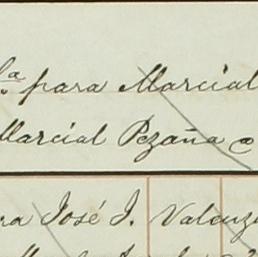 la para Marcial
Marcial Pezaña a
ra José J. Valenz